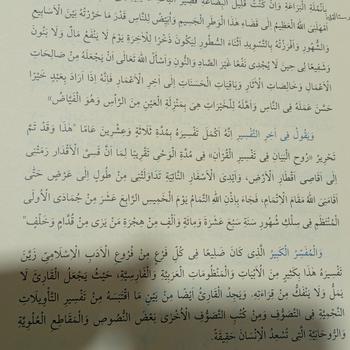 بِأَنْمُلَةِ الْبَرَاعَةِ وَإِنْ كُنْتُ قَلِيلَ الْبِضَاعَةِ
أَمْهَلَنِيَ اللهُ الْعَظِيمُ إِلَى قَضَاءِ هَذَا الْوَطَرِ الْجَسِيمِ وَأُبَيِّضُ لِلنَّاسِ قَدْرَ مَا حَرَّرْتُهُ بَيْنَ الْأَسَابِيعِ
وَالشُّهُورِ وَأَفْرَزْتُهُ بِالتَّسْوِيدِ أَثْنَاءَ السُّطُورِ لِيَكُونَ ذُخْرًا لِلْآخِرَةِ يَوْمَ لَا يَنْفَعُ مَالٌ وَلَا بَنُونَ
وَشَفِيعًا لِى حِينَ لَا يُجْدِى نَفْعًا غَيْرُ الصَّادِ وَالنُّونِ وَأَسْأَلُ اللهَ تَعَالَى أَنْ يَجْعَلَهُ مِنْ صَالِحَاتِ
الْأَعْمَالِ وَخَالِصَاتِ الْآثَارِ وَبَاقِيَاتِ الْحَسَنَاتِ إِلَى آخِرِ الْأَعْمَارِ فَإِنَّهُ إِذَا أَرَادَ بِعَبْدٍ خَيْرًا
حَسَّنَ عَمَلَهُ فِى النَّاسِ وَأَهَّلَهُ لِلْخَيْرَاتِ هِىَ بِمَنْزِلَةِ الْعَيْنِ مِنَ الرَّأْسِ وَهُوَ الْفَيَّاضُ"
وَيَقُولُ فِى آخِرِ التَّفْسِيرِ إِنَّهُ أَكْمَلَ تَفْسِيرَهُ بِمُدَّةِ ثَلَاثَةٍ وَعِشْرِينَ عَامًا "هَذَا وَقَدْ تَمَّ
تَحْرِيرُ «رُوحِ الْبَيَانِ فِى تَفْسِيرِ الْقُرْآنِ» فِى مُدَّةِ الْوَحْىِ تَقْرِيبًا لِمَا أَنَّ قِسِىَّ الْأَقْدَارِ رَمَتْنِى
إِلَى أَقَاصِى أَقْطَارِ الْأَرْضِ، وَأَيْدِى الْأَسْفَارِ النَّائِيَةِ تَدَاوَلَتْنِى مِنْ طُولٍ إِلَى عَرْضٍ حَتَّى
أَقَامَنِى اللهُ مَقَامَ الْإِتْمَامِ، فَجَاءَ بِإِذْنِ اللهِ التَّمَامُ يَوْمَ الْخَمِيسِ الرَّابِعَ عَشَرَ مِنْ جُمَادَى الْأُولَى
الْمُنْتَظِمِ فِى سِلْكِ شُهُورِ سَنَةِ سَبْعَ عَشَرَةَ وَمِائَةٍ وَأَلْفٍ مِنْ هِجْرَةِ مَنْ يَرَى مِنْ قُدَّامٍ وَخَلْفٍ"
وَالْمُفَسِّرُ الْكَبِيرُ الَّذِى كَانَ ضَلِيعًا فِى كُلِّ فَرْعٍ مِنْ فُرُوعِ الْأَدَبِ الْإِسْلَامِىِّ زَيَّنَ
تَفْسِيرَهُ هَذَا بِكَثِيرٍ مِنَ الْأَبْيَاتِ وَالْمَنْظُومَاتِ الْعَرَبِيَّةِ وَالْفَارِسِيَّةِ، حَيْثُ يَجْعَلُ الْقَارِئَ لَا
يَمَلُّ وَلَا يَنْفَكُّ مِنْ قِرَاءَتِهِ. وَيَجِدُ الْقَارِئُ أَيْضًا مِنْ بَيْنِ مَا اقْتَبَسَهُ مِنْ تَفْسِيرِ التَّأْوِيلَاتِ
النَّجْمِيَّةِ فِى التَّصَوُّفِ وَمِنْ كُتُبِ التَّصَوُّفِ الْأُخْرَى بَعْضَ النُّصُوصِ وَالْمَقَاطِعِ الْعُلْوِيَّةِ
وَالرُّوحَانِيَّةِ الَّتِى تُسْعِدُ الْإِنْسَانَ حَقِيقَةً.